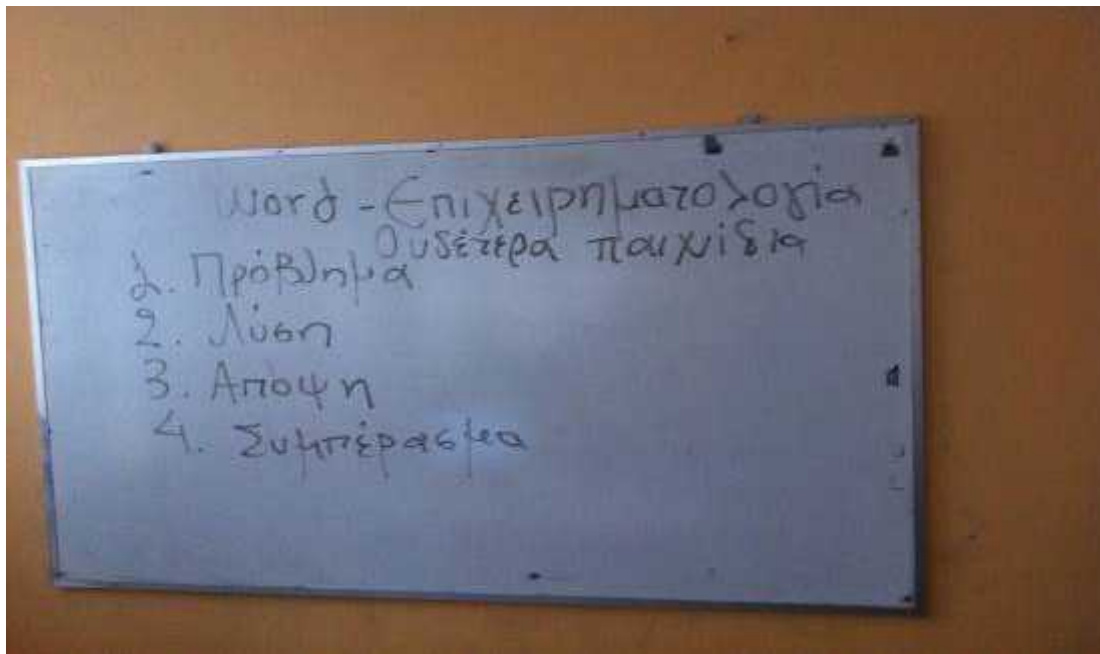 Word - Επιχειρηματολογία
Ουδέτερα παιχνίδια
1. Πρόβλημα
2. Λύση
3. Αποψη
4. Συμπέρασμα